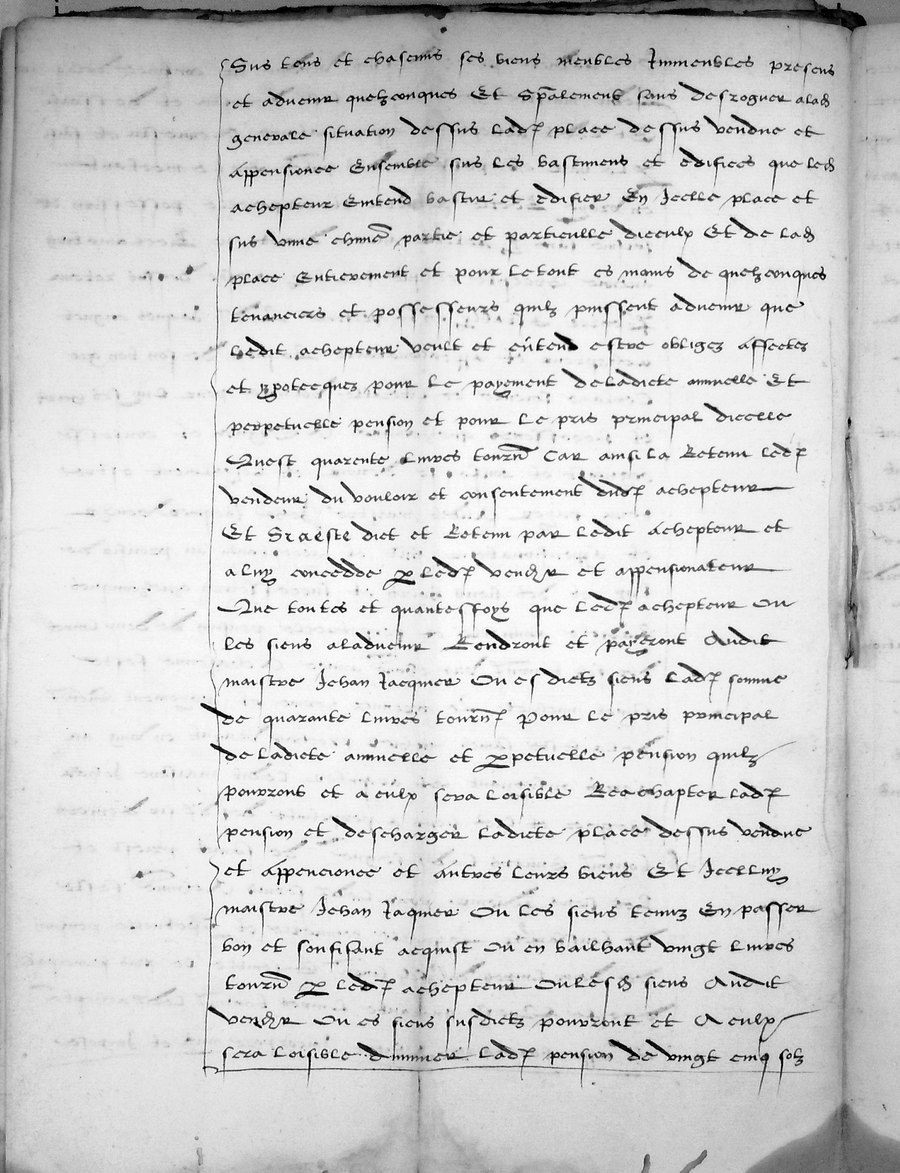 Sus tous et chascuns ses biens meubles Jmmeubles presens
et advenir quelzconques Et Sp̄alement sans desroguer a lad
generale situation dessus lad place dessus vendue et
appensionee Ensemble sus les bastimens et edifices que led
achepteur Entend bastir et edifier En Jcelle place et
sus une chūne partie et particulle diceulx Et de lad
place Entierement et pour le tout es mains de quelzconques
tenanciers et possesseurs quilz puissent advenir que
ledit achepteur veult et entend estre obligez affectes
et ypotecquez pour le payement de ladicte annuelle Et
perpetuelle pension et pour le pris principal dicelle
Quest quarente livres tourn Car ainsi la Retenu led
vendeur du vouloir et consentement dud achepteur
Et Sraeste dict et Retenu par ledit achepteur et
a luy concedde p led vendr et appensionateur
Que toutes et quantesffoys que led achepteur Ou
les siens a ladvenir Rendront et payeront Audit
maistre Jehan Jacquier Ou es dictz siens lad somme
de quarante livres tourn Pour le pris principal
de ladicte annuelle et ppetuelle pension quilz
pourront et a eulx sera loisible Reachapter lad
pension et descharger ladicte place dessus vendue
et appencionee et autres leurs biens Et Jcelluy
maistre Jehan Jaquier Ou les siens tenuz En passer
bon et souffisant acquist Ou en bailhant vingt livres
tourn p led achepteur Ou lesd siens Audit
vendr Ou es siens susdictz pourront et A eulx
sera loisible dminuer lad pension de vingt cinq solz